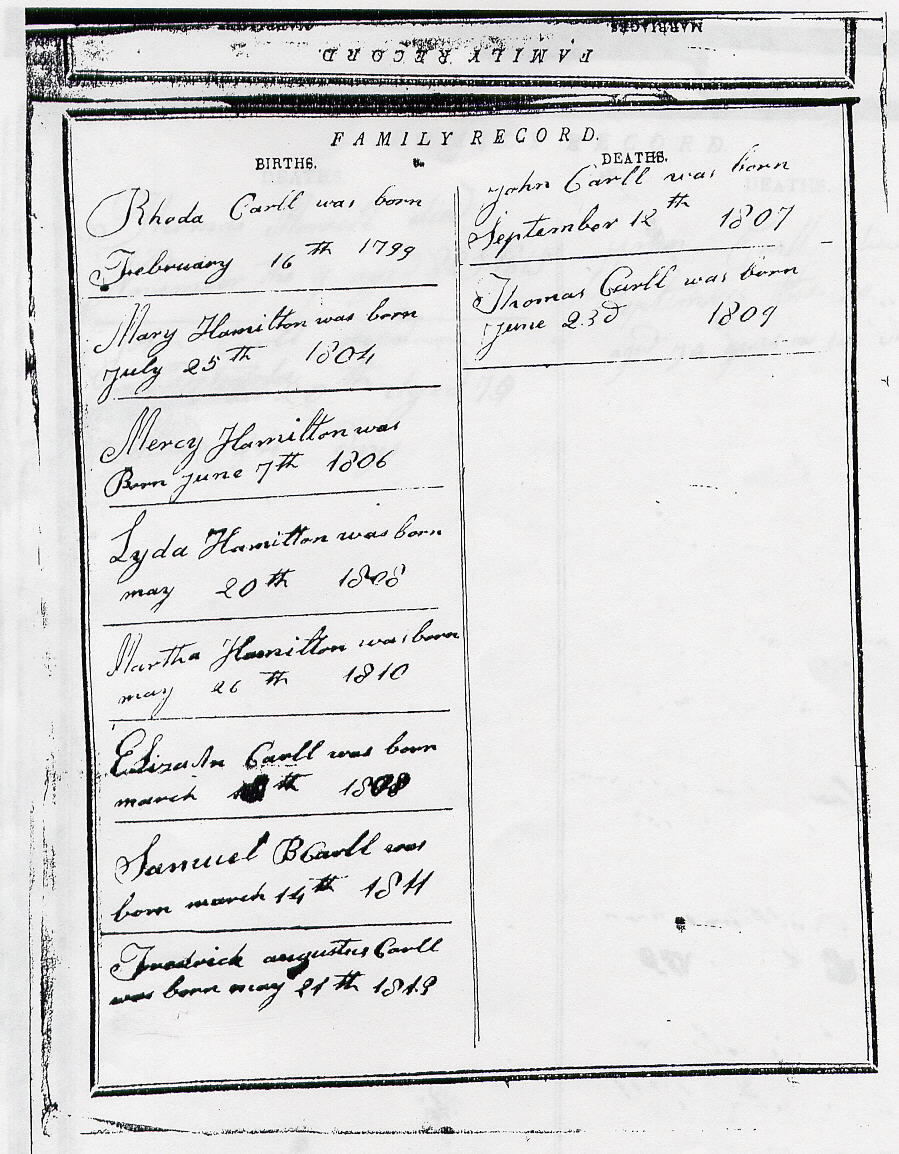 MARRIAGES
FAMILY RECORD.
FAMILY RECORD.
BIRTHS.
Rhoda Carll was born
February 16th 1799
Mary Hamilton was born
July 25th 1804
Mercy Hamilton was
Born June 7th 1806
Lyda Hamilton was born
may 20th 1808
Martha Hamilton was born
may 26th 1810
ELiza An Carll was born
march
Samuel B Carll was
born march 14th 1811
Fredrick augustus Carll
was born may 21th
DEATHS.
John Carll was born
September 12th 1807
Thomas Carll was born
June 23d 1809